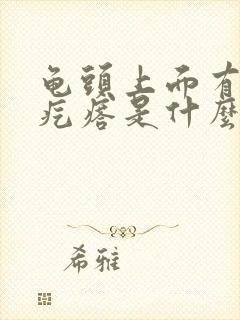 龟頭上而有
疙瘩是什麼
希雅